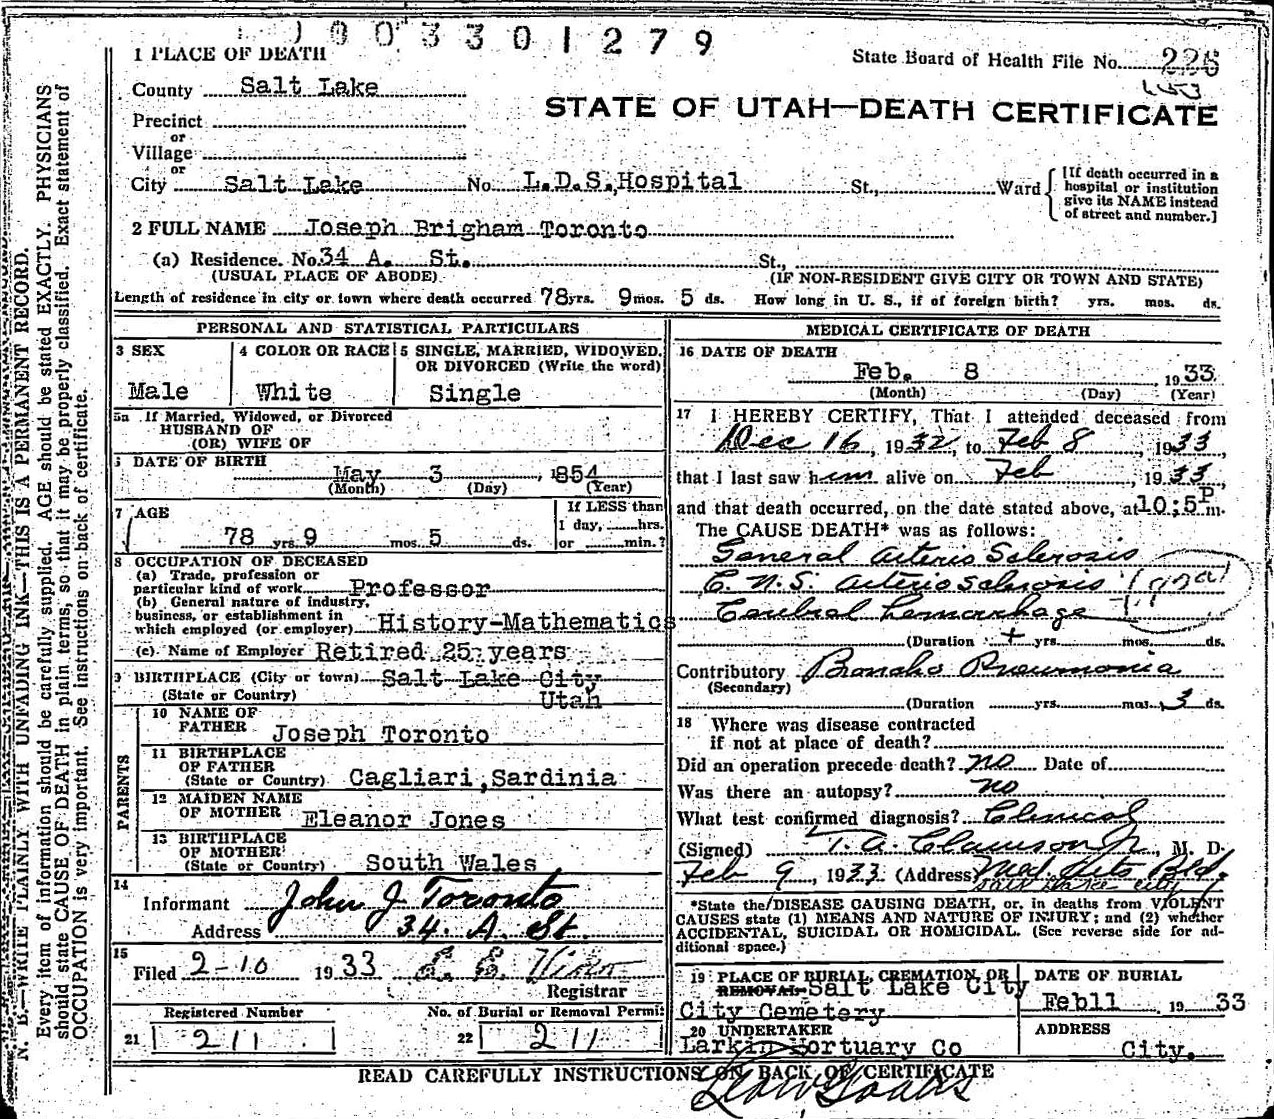 1003301279
1 PLACE OF DEATH
State Board of Health File No. 226
County Salt Lake
STATE OF UTAH—DEATH CERTIFICATE
Precinct
or
Village
or
City Salt Lake No. L.D.S. Hospital St., Ward
[If death occurred in a hospital or institution give its NAME instead of street and number.]
2 FULL NAME Joseph Brigham Toronto
(a) Residence. No. 34 A. St. St.,
(USUAL PLACE OF ABODE) (IF NON-RESIDENT GIVE CITY OR TOWN AND STATE)
Length of residence in city or town where death occurred 78 yrs. 9 mos. 5 ds. How long in U. S., if of foreign birth? yrs. mos. ds.
PERSONAL AND STATISTICAL PARTICULARS
3 SEX
Male
4 COLOR OR RACE
White
5 SINGLE, MARRIED, WIDOWED,
OR DIVORCED (Write the word)
Single
5a If Married, Widowed, or Divorced
HUSBAND OF
(OR) WIFE OF
DATE OF BIRTH
May 3, 1854
(Month) (Day) (Year)
7 AGE
78 yrs 9 mos. 5 ds.
If LESS than
1 day, hrs.
or min.?
8 OCCUPATION OF DECEASED
(a) Trade, profession or
particular kind of work Professor
(b) General nature of industry,
business, or establishment in
which employed (or employer) History-Mathematics
(c) Name of Employer Retired 25 years
9 BIRTHPLACE (City or town) Salt Lake City
(State or Country) Utah
PARENTS
10 NAME OF
FATHER Joseph Toronto
11 BIRTHPLACE
OF FATHER
(State or Country) Cagliari, Sardinia
12 MAIDEN NAME
OF MOTHER Eleanor Jones
13 BIRTHPLACE
OF MOTHER
(State or Country) South Wales
14
Informant John J Toronto
Address 34. A. St.
15
Filed 2-10 1933
Registrar
Registered Number
21 211
No. of Burial or Removal Permit
22 211
MEDICAL CERTIFICATE OF DEATH
16 DATE OF DEATH
Feb. 8 1933
(Month) (Day) (Year)
17 I HEREBY CERTIFY, That I attended deceased from
Dec 16, 1932, to Feb 8, 1933,
that I last saw him alive on Feb, 1933,
and that death occurred, on the date stated above, at 10:5 P m.
The CAUSE DEATH* was as follows:
General Arterio Sclerosis
C. N. S. Arterio Sclerosis
Cerebral Hemorrhage
(Duration + yrs. mos. ds.
Contributory Broncho Pneumonia
(Secondary)
(Duration yrs. mos. 3 ds.
18 Where was disease contracted
if not at place of death?
Did an operation precede death? no Date of
Was there an autopsy? no
What test confirmed diagnosis? Clinical
(Signed) T. A. Clawson Jr, M. D.
Feb 9, 1933 (Address) Med. Arts Bld.
Salt Lake City
*State the DISEASE CAUSING DEATH, or, in deaths from VIOLENT
CAUSES state (1) MEANS AND NATURE OF INJURY; and (2) whether
ACCIDENTAL, SUICIDAL OR HOMICIDAL. (See reverse side for ad-
ditional space.)
19 PLACE OF BURIAL, CREMATION, OR
REMOVAL Salt Lake City
City Cemetery
DATE OF BURIAL
Feb11 1933
20 UNDERTAKER
Larkin Mortuary Co
ADDRESS
City.
READ CAREFULLY INSTRUCTIONS ON BACK OF CERTIFICATE
N. B.—WRITE PLAINLY WITH UNFADING INK—THIS IS A PERMANENT RECORD.
Every item of information should be carefully supplied. AGE should be stated EXACTLY. PHYSICIANS
should state CAUSE OF DEATH in plain terms, so that it may be properly classified. Exact statement of
OCCUPATION is very important. See instructions on back of certificate.